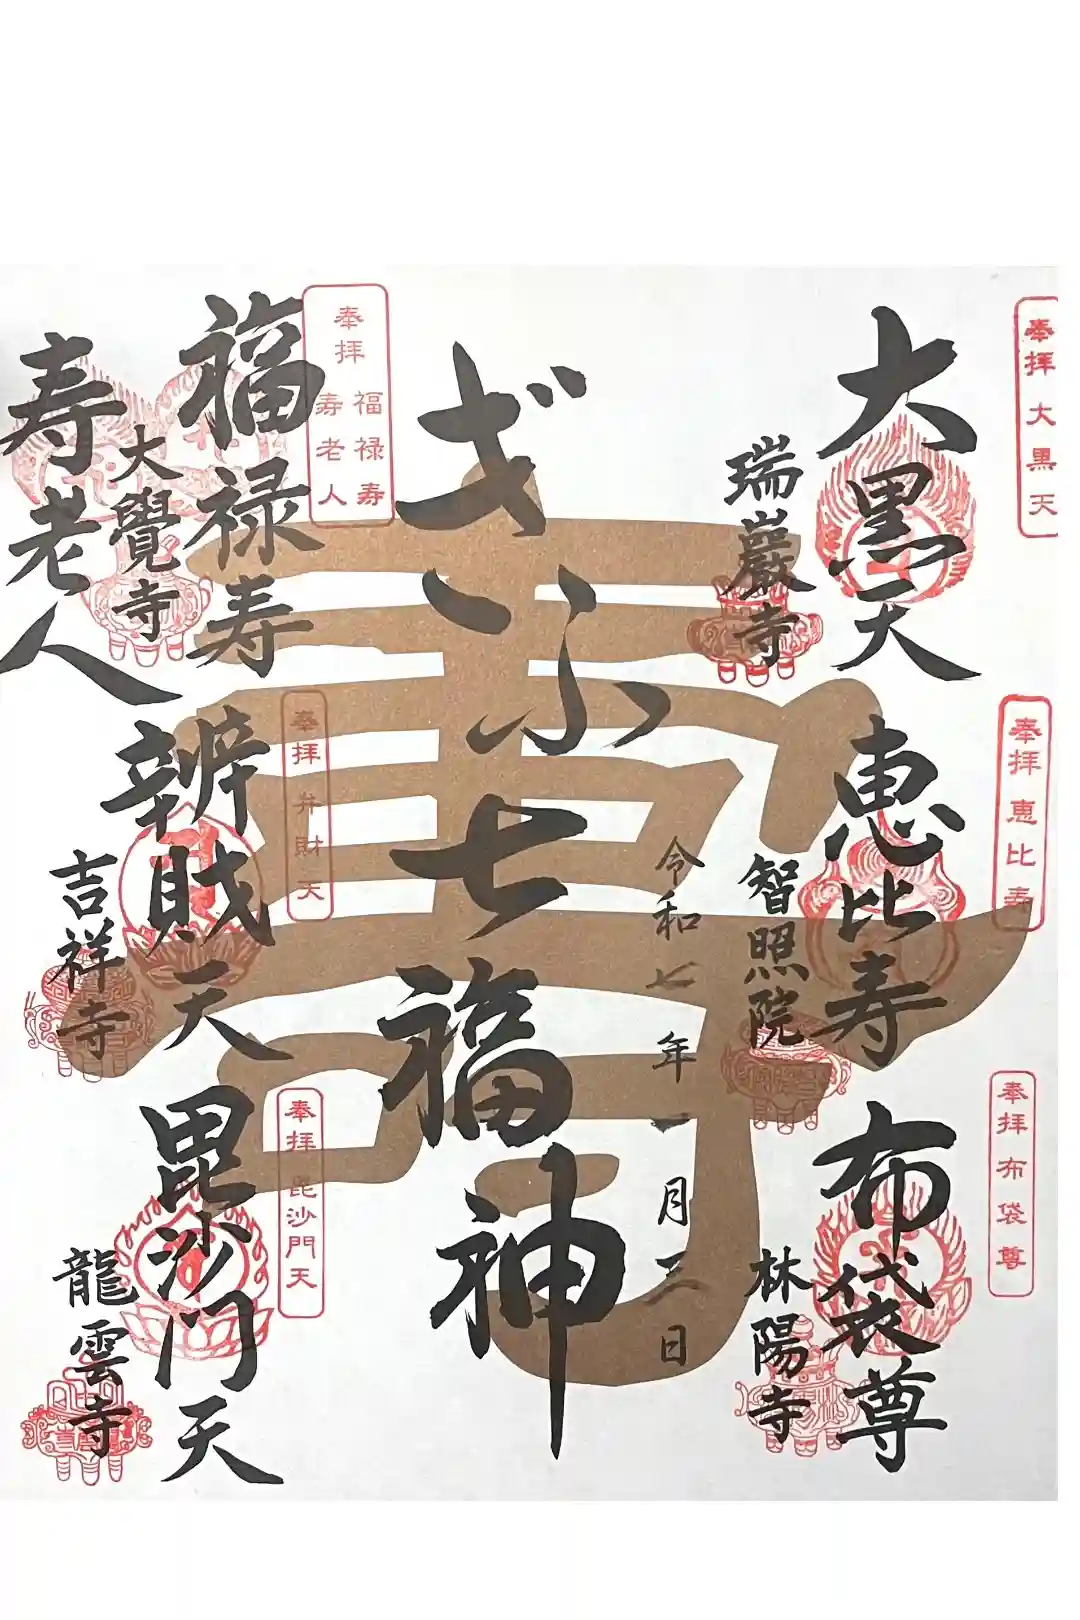 奉拝 大黒天
大黒天
瑞巖寺
奉拝 恵比寿
恵比寿
智照院
奉拝 布袋尊
布袋尊
林陽寺
令和七年一月三日
壽
ぎふ七福神
奉拝
福禄寿
寿老人
福禄寿
大覺寺
寿老人
奉拝 弁財天
辨財天
吉祥寺
奉拝 毘沙門天
毘沙門天
龍雲寺